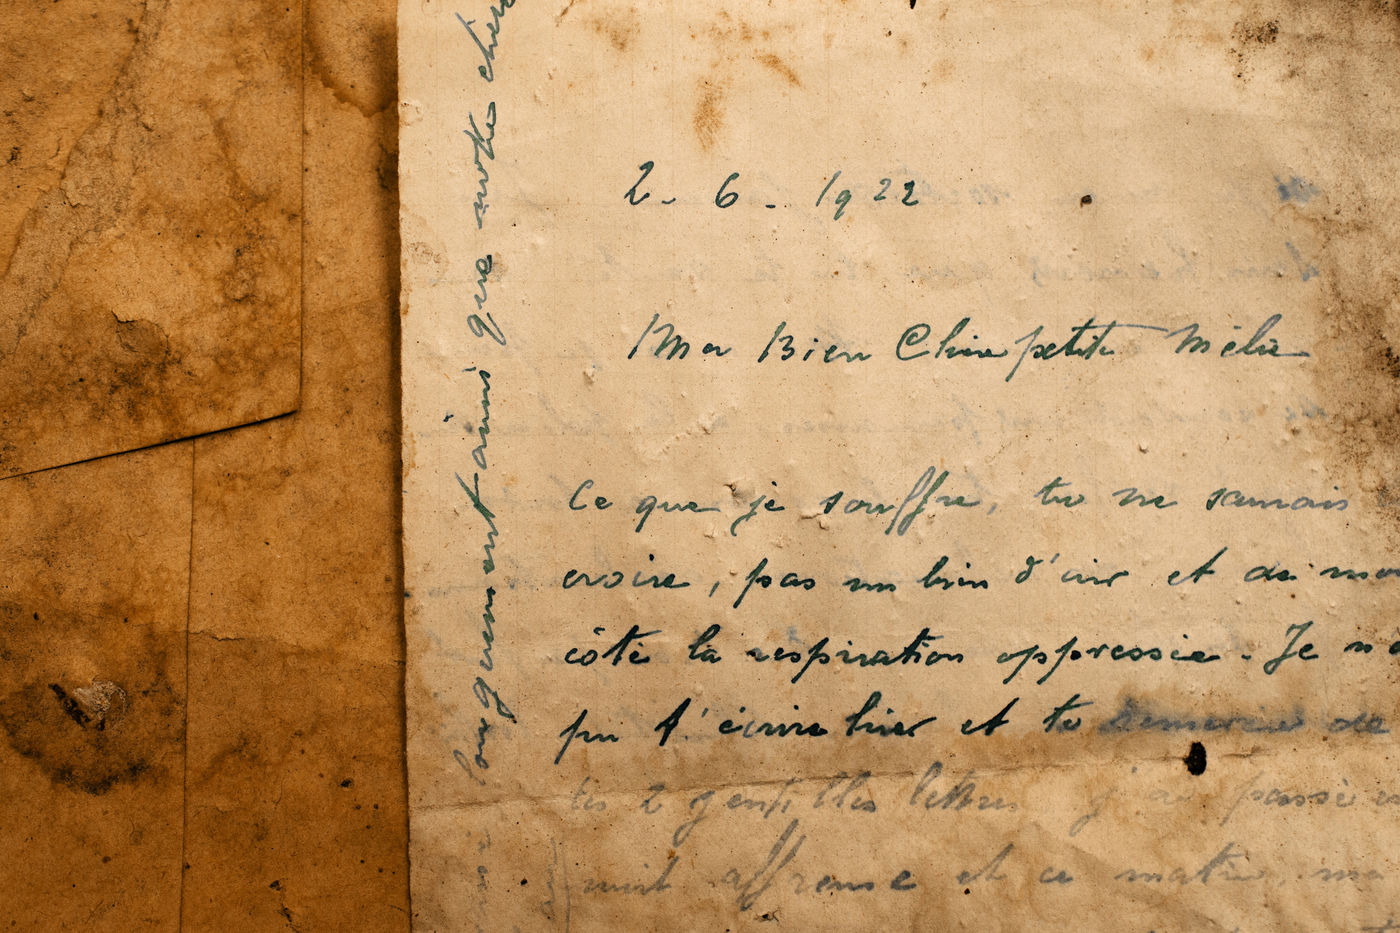 2. 6. 1922
Ma Bien Chère petite Mélie
Ce que je souffre, tu ne saurais
croire, pas un brin d'air et de mon
côté la respiration oppressée. Je n'ai
pu t'écrire hier et te remercier de
tes 2 gentilles lettres j'ai passé
nuit affreuse et ce matin, ma
longuement ainsi que notre chère